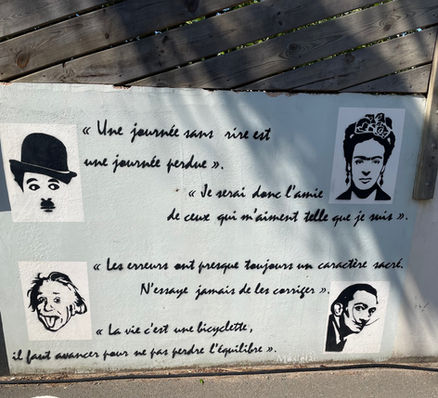 « Une journée sans rire est
une journée perdue ».
« Je serai donc l'amie
de ceux qui m'aiment telle que je suis ».
« Les erreurs ont presque toujours un caractère sacré.
N'essaye jamais de les corriger ».
« La vie c'est une bicyclette,
il faut avancer pour ne pas perdre l'équilibre ».